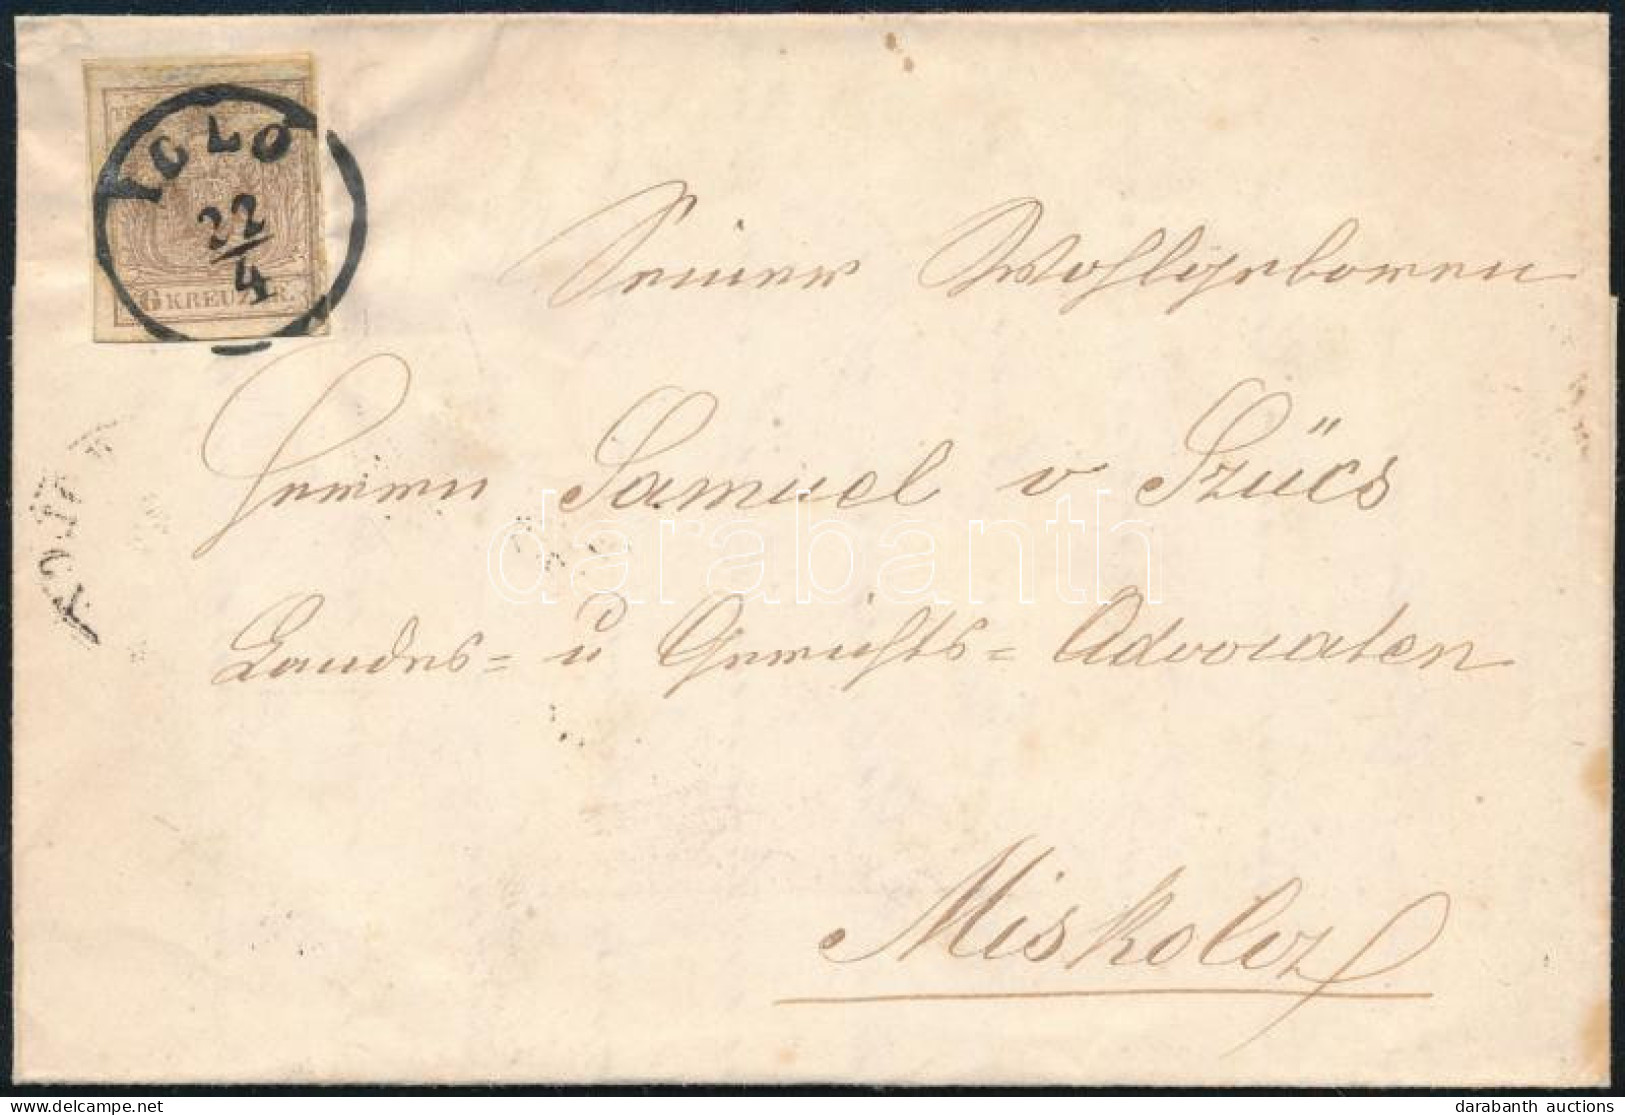 IGLO
22
4
6 KREUZER.
Seiner Wohlgeboren
Herrn Samuel v Szücs
darabanth
Landes= u Gerichts= Advocaten
Miskolcz
darabanth auctions